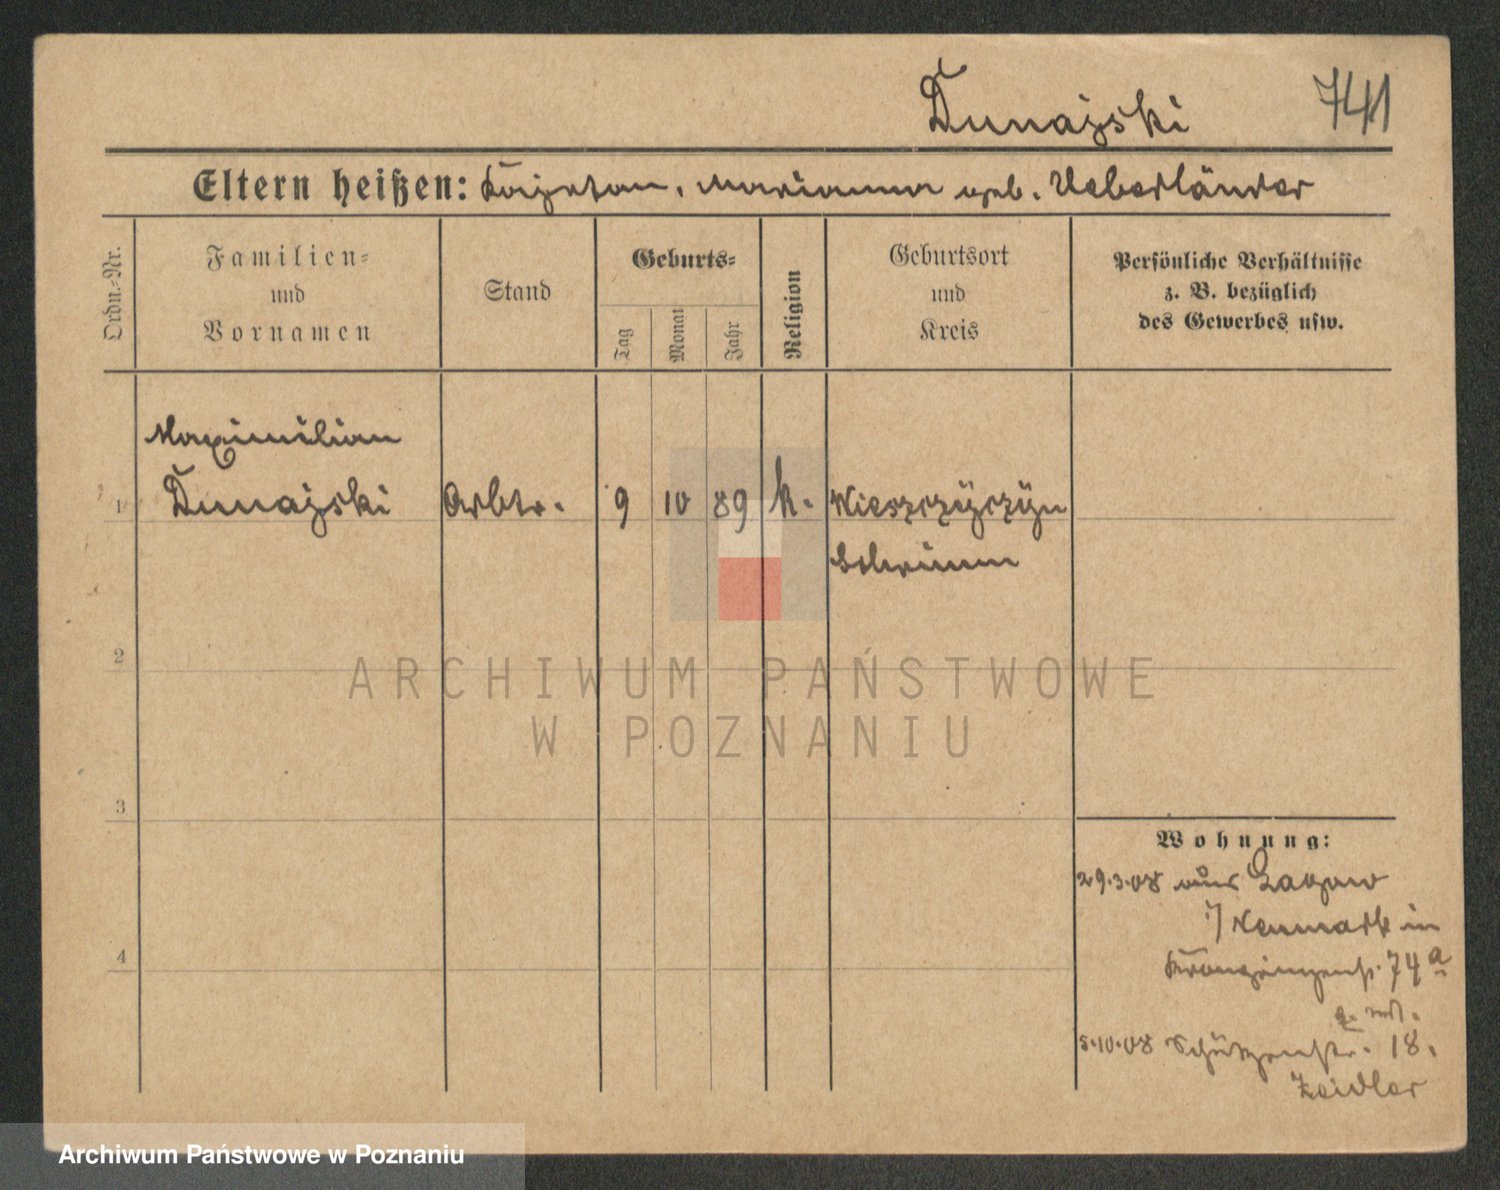 Dunajski
741
Eltern heißen: Kajetan, Marianna geb. Ueberländer
Ordn.-Nr.
Familien-
und
Vornamen
Stand
Geburts-
Tag
Monat
Jahr
Religion
Geburtsort
und
Kreis
Persönliche Verhältnisse
z. B. bezüglich
des Gewerbes usw.
Maximilian
1 Dunajski Arbtr. 9 10 89 k. Wieszczyczyn
Schrimm
2
ARCHIWUM PAŃSTWOWE
W POZNANIU
3
Wohnung:
29.3.08 aus Lagow
i/Neumark in
4
Kronprinzenstr. 74a
5.10.08 Schützenstr. 18.
Zeidler
Archiwum Państwowe w Poznaniu